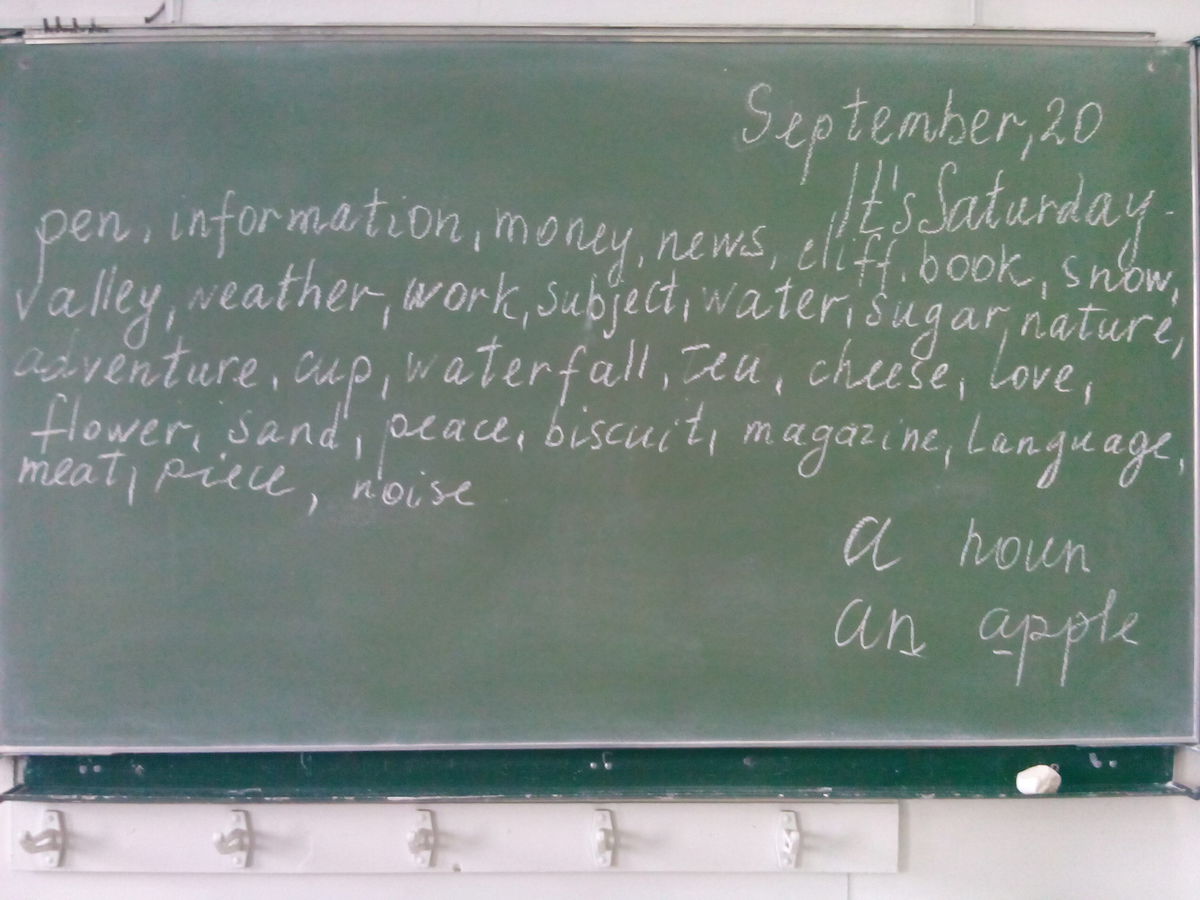 September, 20
It's Saturday.
pen, information, money, news, cliff, book, snow,
valley, weather, work, subject, water, sugar, nature,
adventure, cup, waterfall, tea, cheese, love,
flower, sand, peace, biscuit, magazine, language,
meat, piece, noise
a noun
an apple